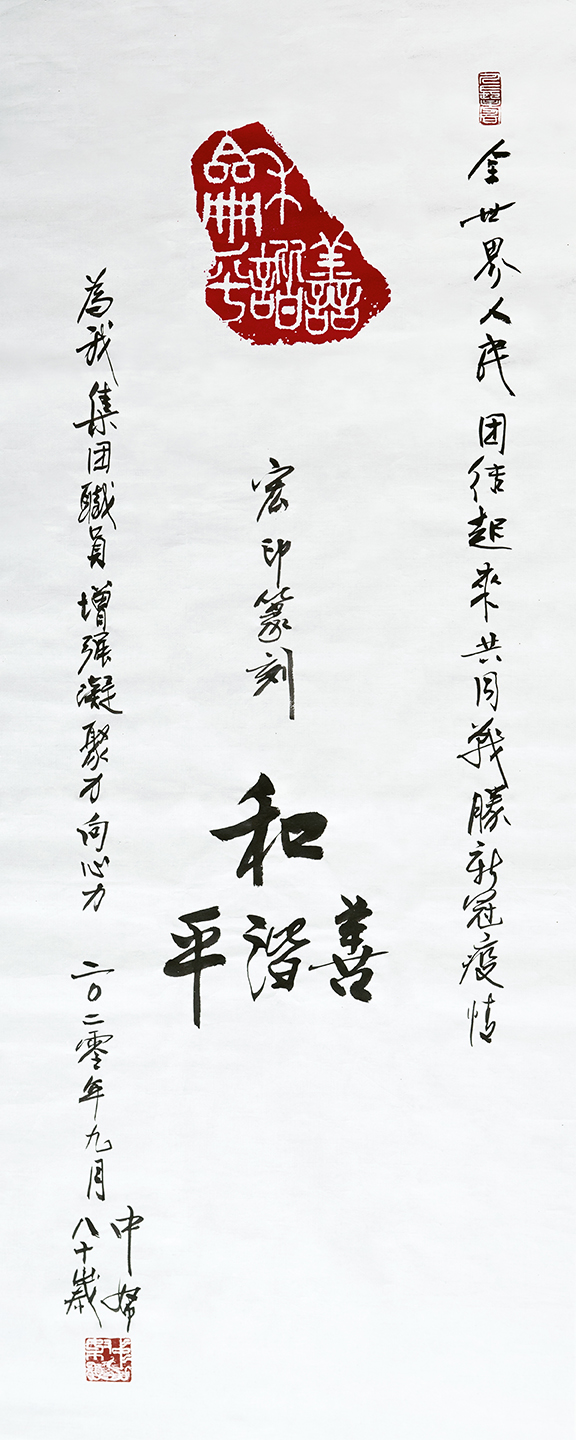 全世界人民团结起来共同戰勝新冠疫情
龢
善諧平
宏印篆刻
和
善谐平
為我集团職員增强凝聚力向心力
二〇二零年九月
中
八十歲